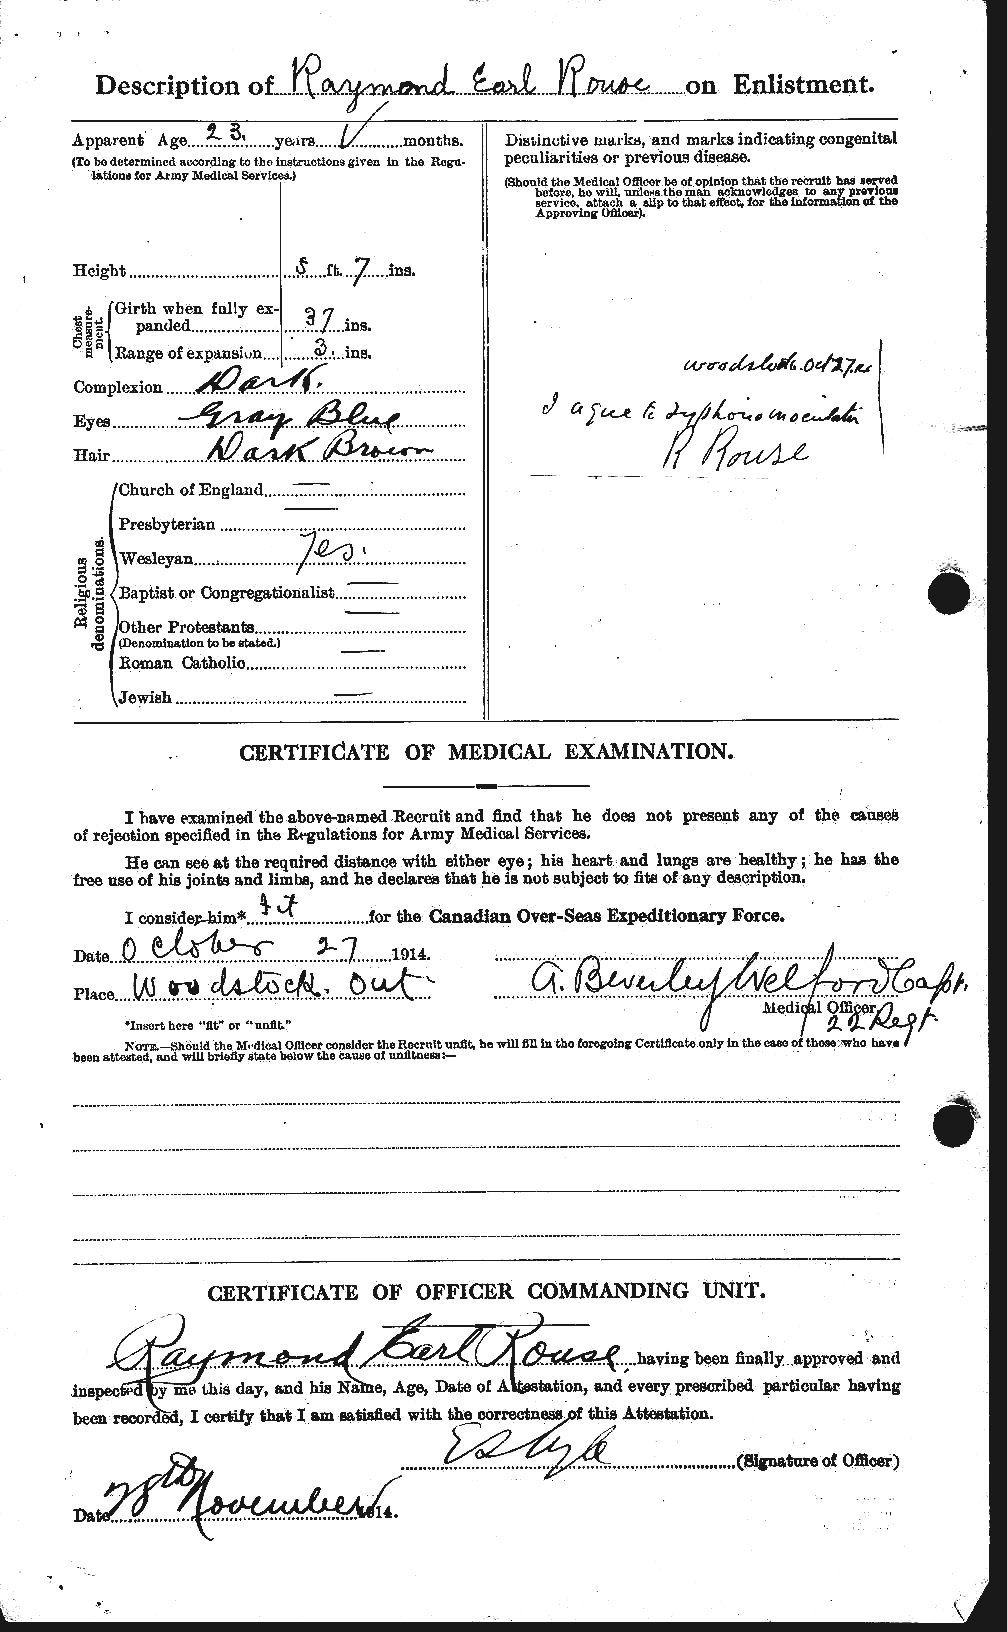 Description of Raymond Earl Rouse on Enlistment.
Apparent Age 23. years V months.
(To be determined according to the instructions given in the Regu-
lations for Army Medical Services.)
Height 5 ft. 7 ins.
Chest measure-ment.
Girth when fully ex-
panded 37 ins.
Range of expansion 3. ins.
Complexion Dark.
Eyes Gray Blue
Hair Dark Brown
Religious denominations.
Church of England —
Presbyterian —
Wesleyan Yes.
Baptist or Congregationalist —
Other Protestants —
(Denomination to be stated.)
Roman Catholic —
Jewish —
Distinctive marks, and marks indicating congenital
peculiarities or previous disease.
(Should the Medical Officer be of opinion that the recruit has served
before, he will, unless the man acknowledges to any previous
service, attach a slip to that effect, for the information of the
Approving Officer).
Woodstock. Oct 27/14
I agree to typhoid inoculation
R Rouse
CERTIFICATE OF MEDICAL EXAMINATION.
I have examined the above-named Recruit and find that he does not present any of the causes
of rejection specified in the Regulations for Army Medical Services.
He can see at the required distance with either eye; his heart and lungs are healthy; he has the
free use of his joints and limbs, and he declares that he is not subject to fits of any description.
I consider him* fit for the Canadian Over-Seas Expeditionary Force.
Date October 27 1914.
Place Woodstock. Ont.
A. Beverley Welford Capt.
Medical Officer.
22 Regt
*Insert here "fit" or "unfit."
NOTE.—Should the Medical Officer consider the Recruit unfit, he will fill in the foregoing Certificate only in the case of those who have
been attested, and will briefly state below the cause of unfitness:—
CERTIFICATE OF OFFICER COMMANDING UNIT.
Raymond Earl Rouse having been finally approved and
inspected by me this day, and his Name, Age, Date of Attestation, and every prescribed particular having
been recorded, I certify that I am satisfied with the correctness of this Attestation.
(Signature of Officer)
Date 28th November 1914.